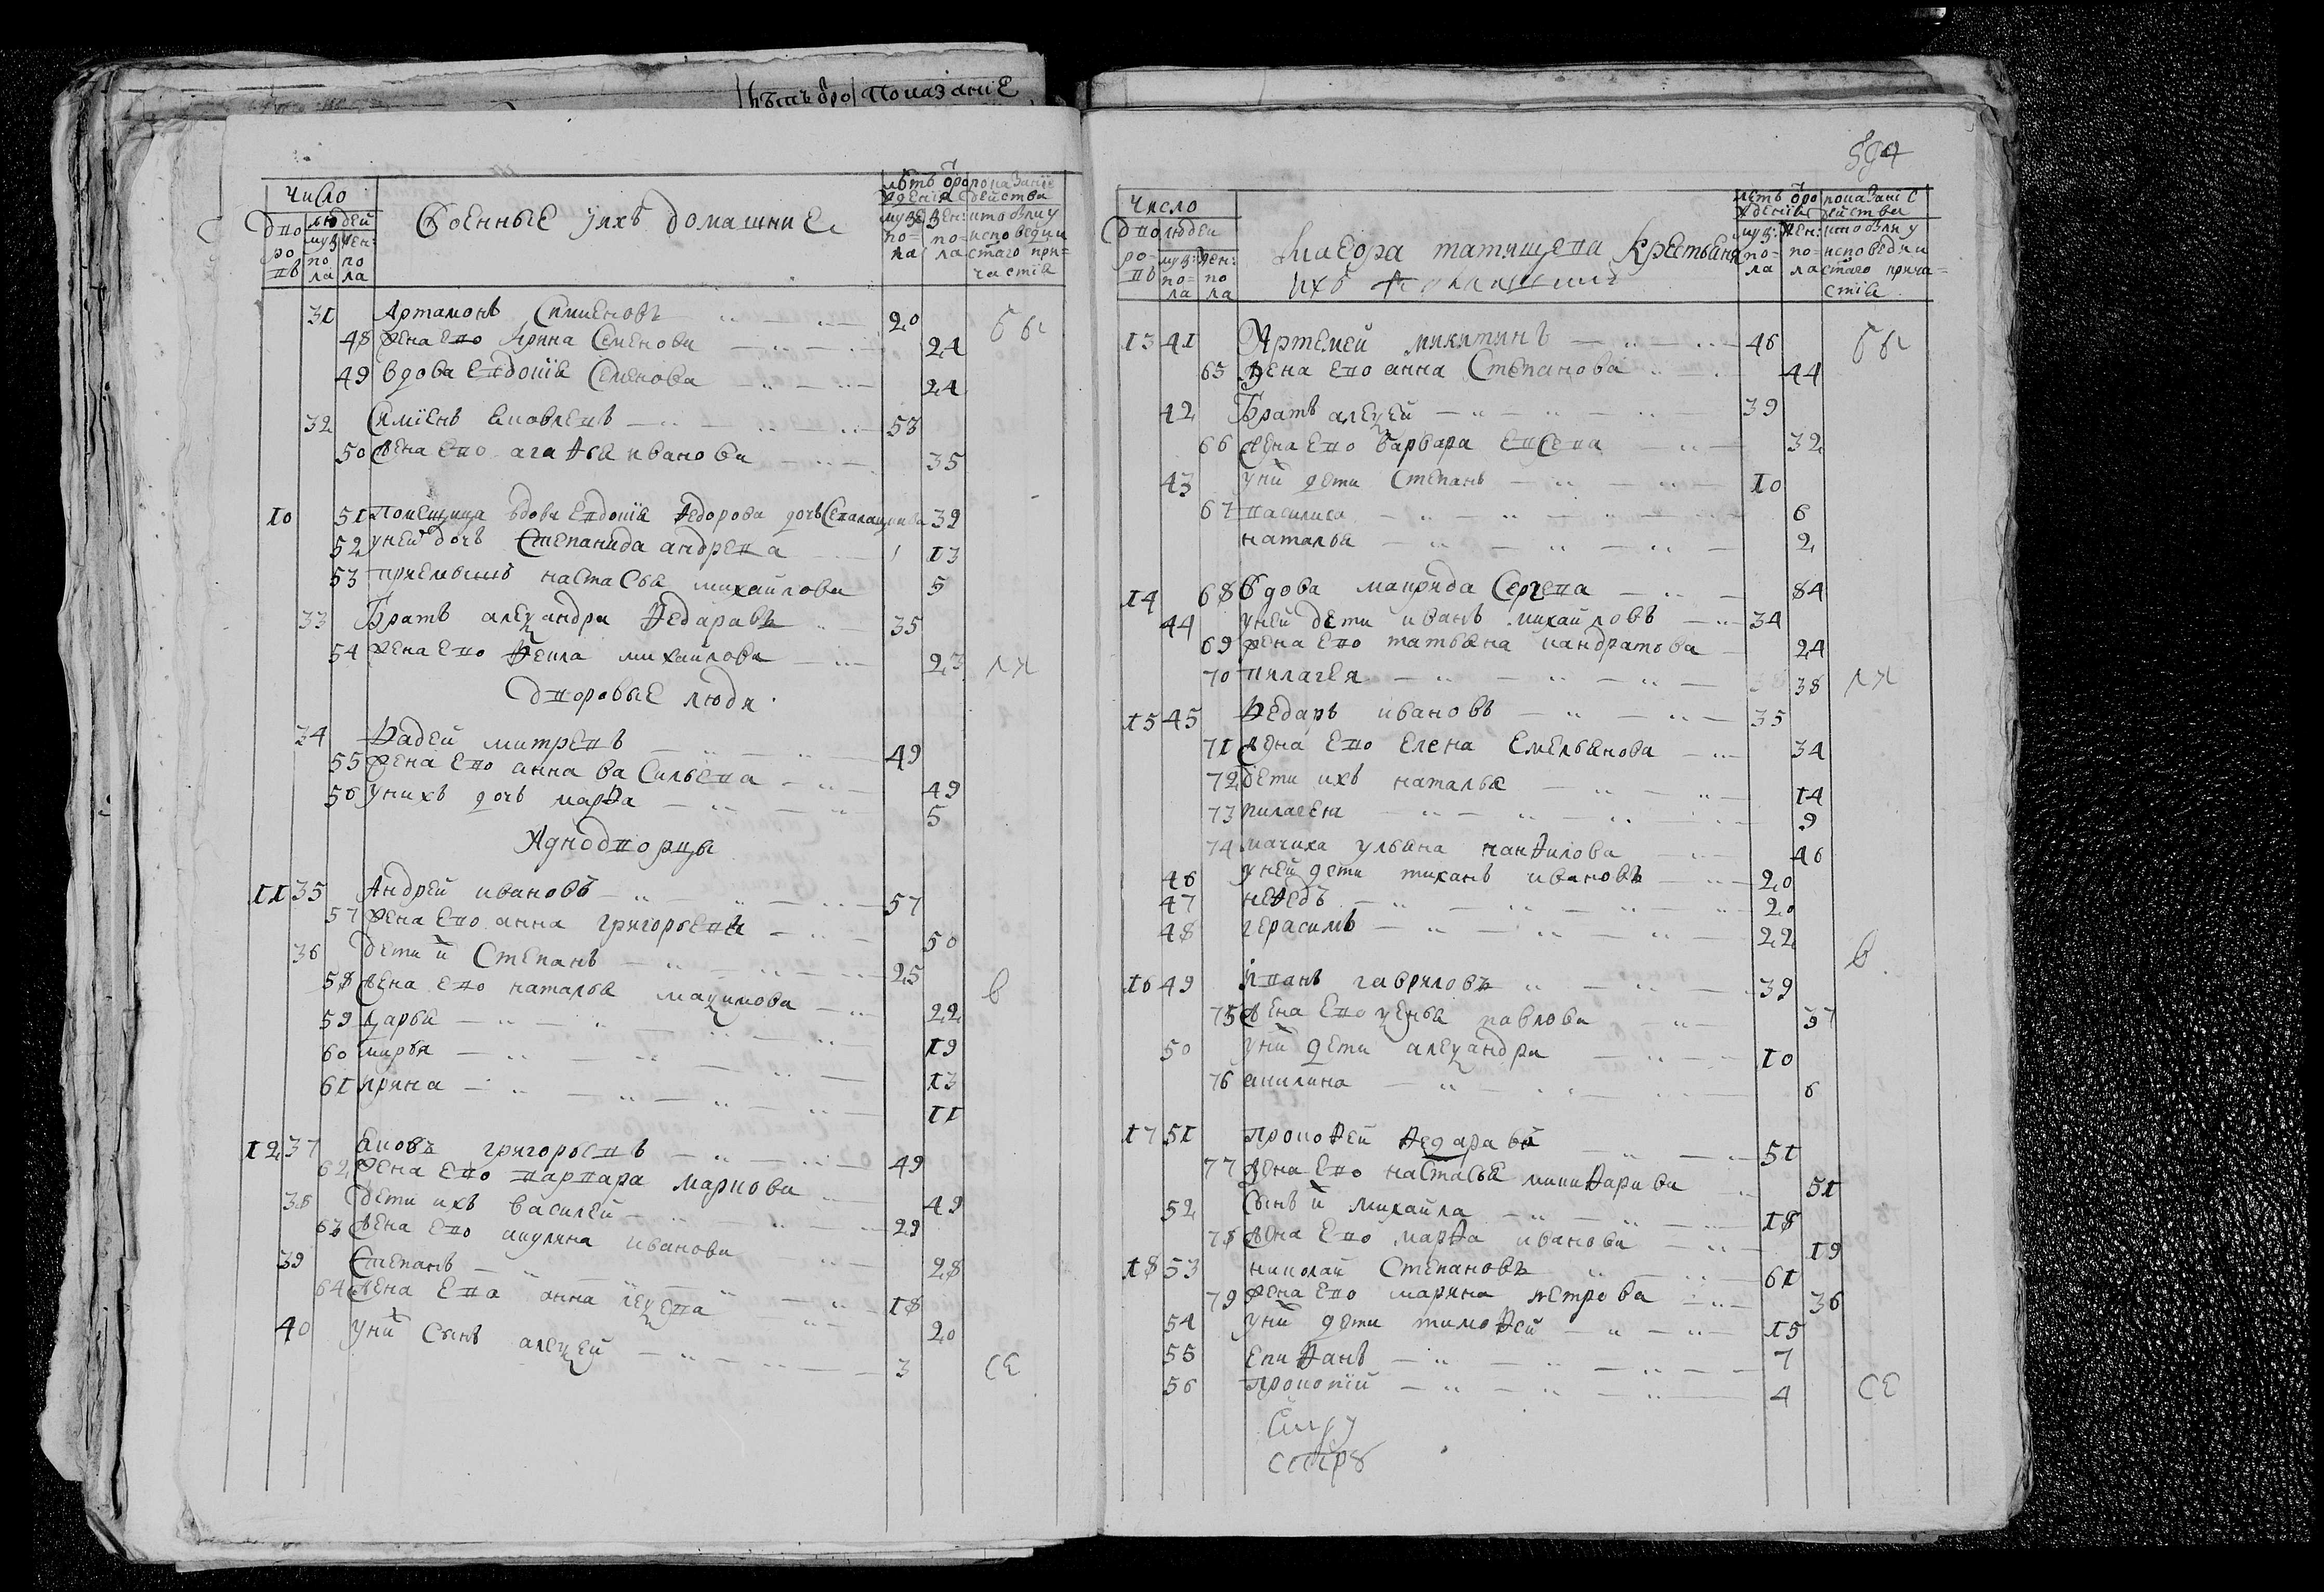 лѣтъ ѿро показание
число
дворовъ
людей
мужска пола
жен: пола
Военные и ихъ домашние
лѣтъ ѿ рождения
мужска пола
жен: пола
показание действа кто былъ у исповеди и стаго причастия
31 Артамонъ Симиеновъ 20 бы
48 жена ево Ирина Семенова 24
49 вдова Евдокия Семенова 24
32 Симиенъ Яковлевъ 53
50 жена ево агафья иванова 35
10 51 помещица вдова Евдокия Федорова дочь 39
52 у ней дочь Степанида андрева 13
53 приемышъ настасья михайлова 5
33 Братъ алеѯандра Федаравъ 35
54 жена ево Фекла михайлова 23 ли
Дворовые люди
34 Фадей митревъ 49
55 жена ево анна васильева 49
56 у нихъ дочь марфа 5
Аднодворцы
11 35 Андрей ивановъ 57
57 жена ево анна григорьева 50
36 дети и Степанъ 25
58 жена ево наталья маѯимова 22 в
59 дарья 19
60 марья 13
61 ирина 11
12 37 Яковъ григорьевъ 49
62 жена ево варвара маркова 49
38 дети ихъ василей 29
63 жена ево акулина иванова 28
39 Степанъ 18
64 жена ево анна 20
40 у ни сынъ алеѯей 3 се
594
число
дворовъ
людей
мужс: пола
жен: пола
Маеора татищева крестьяня
ихъ домашние
летъ ѿ рождения
муж: пола
жен: пола
показание действа кто былъ у исповеди и стаго причастия
13 41 Артемей микитинъ 46 бы
65 жена ево анна Степанова 44
42 Братъ алеѯей 39
66 жена ево варвара евсева 32
43 у ни дети Степанъ 10
67 василиса 6
наталья 2
14 68 вдова маврида Сергева 84
44 у ней дети иванъ михайловъ 34
69 жена ево татьяна кандратова 24
70 пилагея 38 ли
15 45 Федаръ ивановъ 35
71 жена ево Елена Емельянова 34
72 дети ихъ наталья 14
73 пилагея 9
74 мачиха ульяна панфилова 46
46 у ней дети тиханъ ивановъ 20
47 нефедъ 20
48 герасимъ 22 в
16 49 Иванъ гавриловъ 39
75 жена ево ѯенья павлова 37
50 у ни дети алеѯандра 10
76 акилина 6
17 51 прокофей Федаравъ 51
77 жена ево настасья никифарива 51
52 сынъ и михайла 18
78 жена ево марфа иванова 19
18 53 николай Степановъ 61
79 жена ево марина петрова 36
54 у ни дети тимофей 15
55 епифанъ 7
56 прокопий 4 се